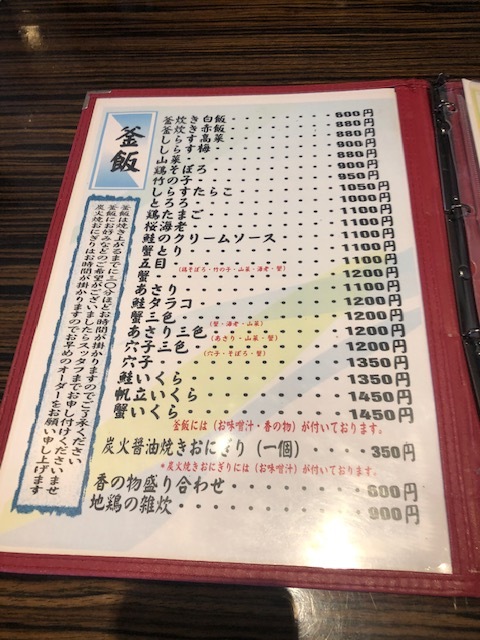 釜飯
釜飯は焼き上がるまでに三〇分ほどお時間が掛かりますのでご了承ください
釜飯にお好みなどのご希望がございましたらスタッフまでお申し付けくださいませ
炭火焼おにぎりはお時間が掛かりますのでお早めのオーダーをお願い申し上げます
釜炊き白飯 600円
釜炊き赤飯 880円
880円
900円
880円
900円
950円
1050円
1000円
1100円
1100円
1100円
鮭のクリームソース 1100円
蟹 1100円
五目 (鶏そぼろ・竹の子・山菜・海老・蟹) 1200円
1100円
1100円
1200円
蟹三色 (蟹・海老・山菜) 1200円
あさり三色 (あさり・山菜・蟹) 1200円
穴子三色 (穴子・そぼろ・蟹) 1200円
穴子 1350円
鮭いくら 1350円
帆立いくら 1450円
蟹いくら 1450円
釜飯には(お味噌汁・香の物)が付いております。
炭火醤油焼きおにぎり(一個) 350円
*炭火焼おにぎりには(お味噌汁)が付いております。
香の物盛り合わせ 600円
地鶏の雑炊 900円